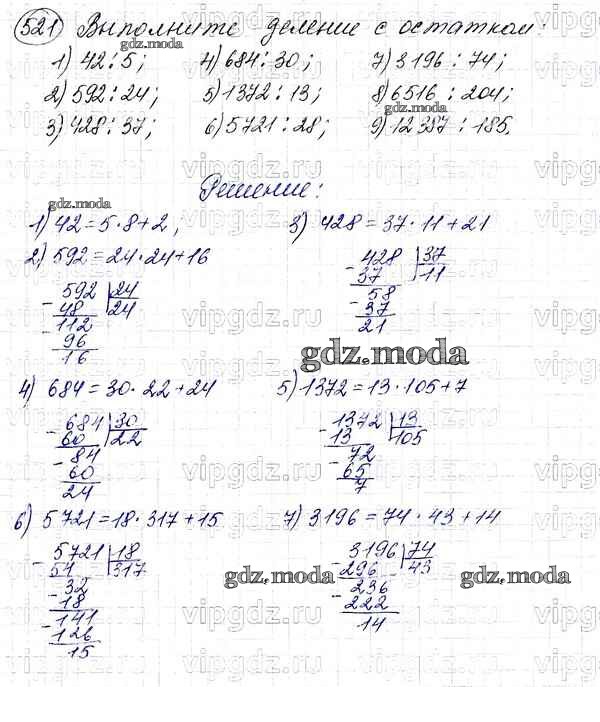 521 Выполните деление с остатком:
1) 42:5; 4) 684:30; 7) 3196:74;
2) 592:24; 5) 1372:13; 8) 6516:204;
3) 428:37; 6) 5721:28; 9) 12387:185.
Решение:
1) 42=5·8+2;
2) 592=24·24+16
592 24
- 48 24
112
- 96
16
3) 428=37·11+21
- 428 37
37 11
- 58
37
21
4) 684=30·22+24
- 684 30
60 22
- 84
60
24
5) 1372=13·105+7
- 1372 13
13 105
- 72
65
7
6) 5721=18·317+15
- 5721 18
54 317
- 32
18
- 141
126
15
7) 3196=74·43+14
- 3196 74
296 43
- 236
222
14
gdz.moda
gdz.moda
gdz.moda
gdz.moda
gdz.moda
gdz.moda
gdz.moda
vipgdz.ru